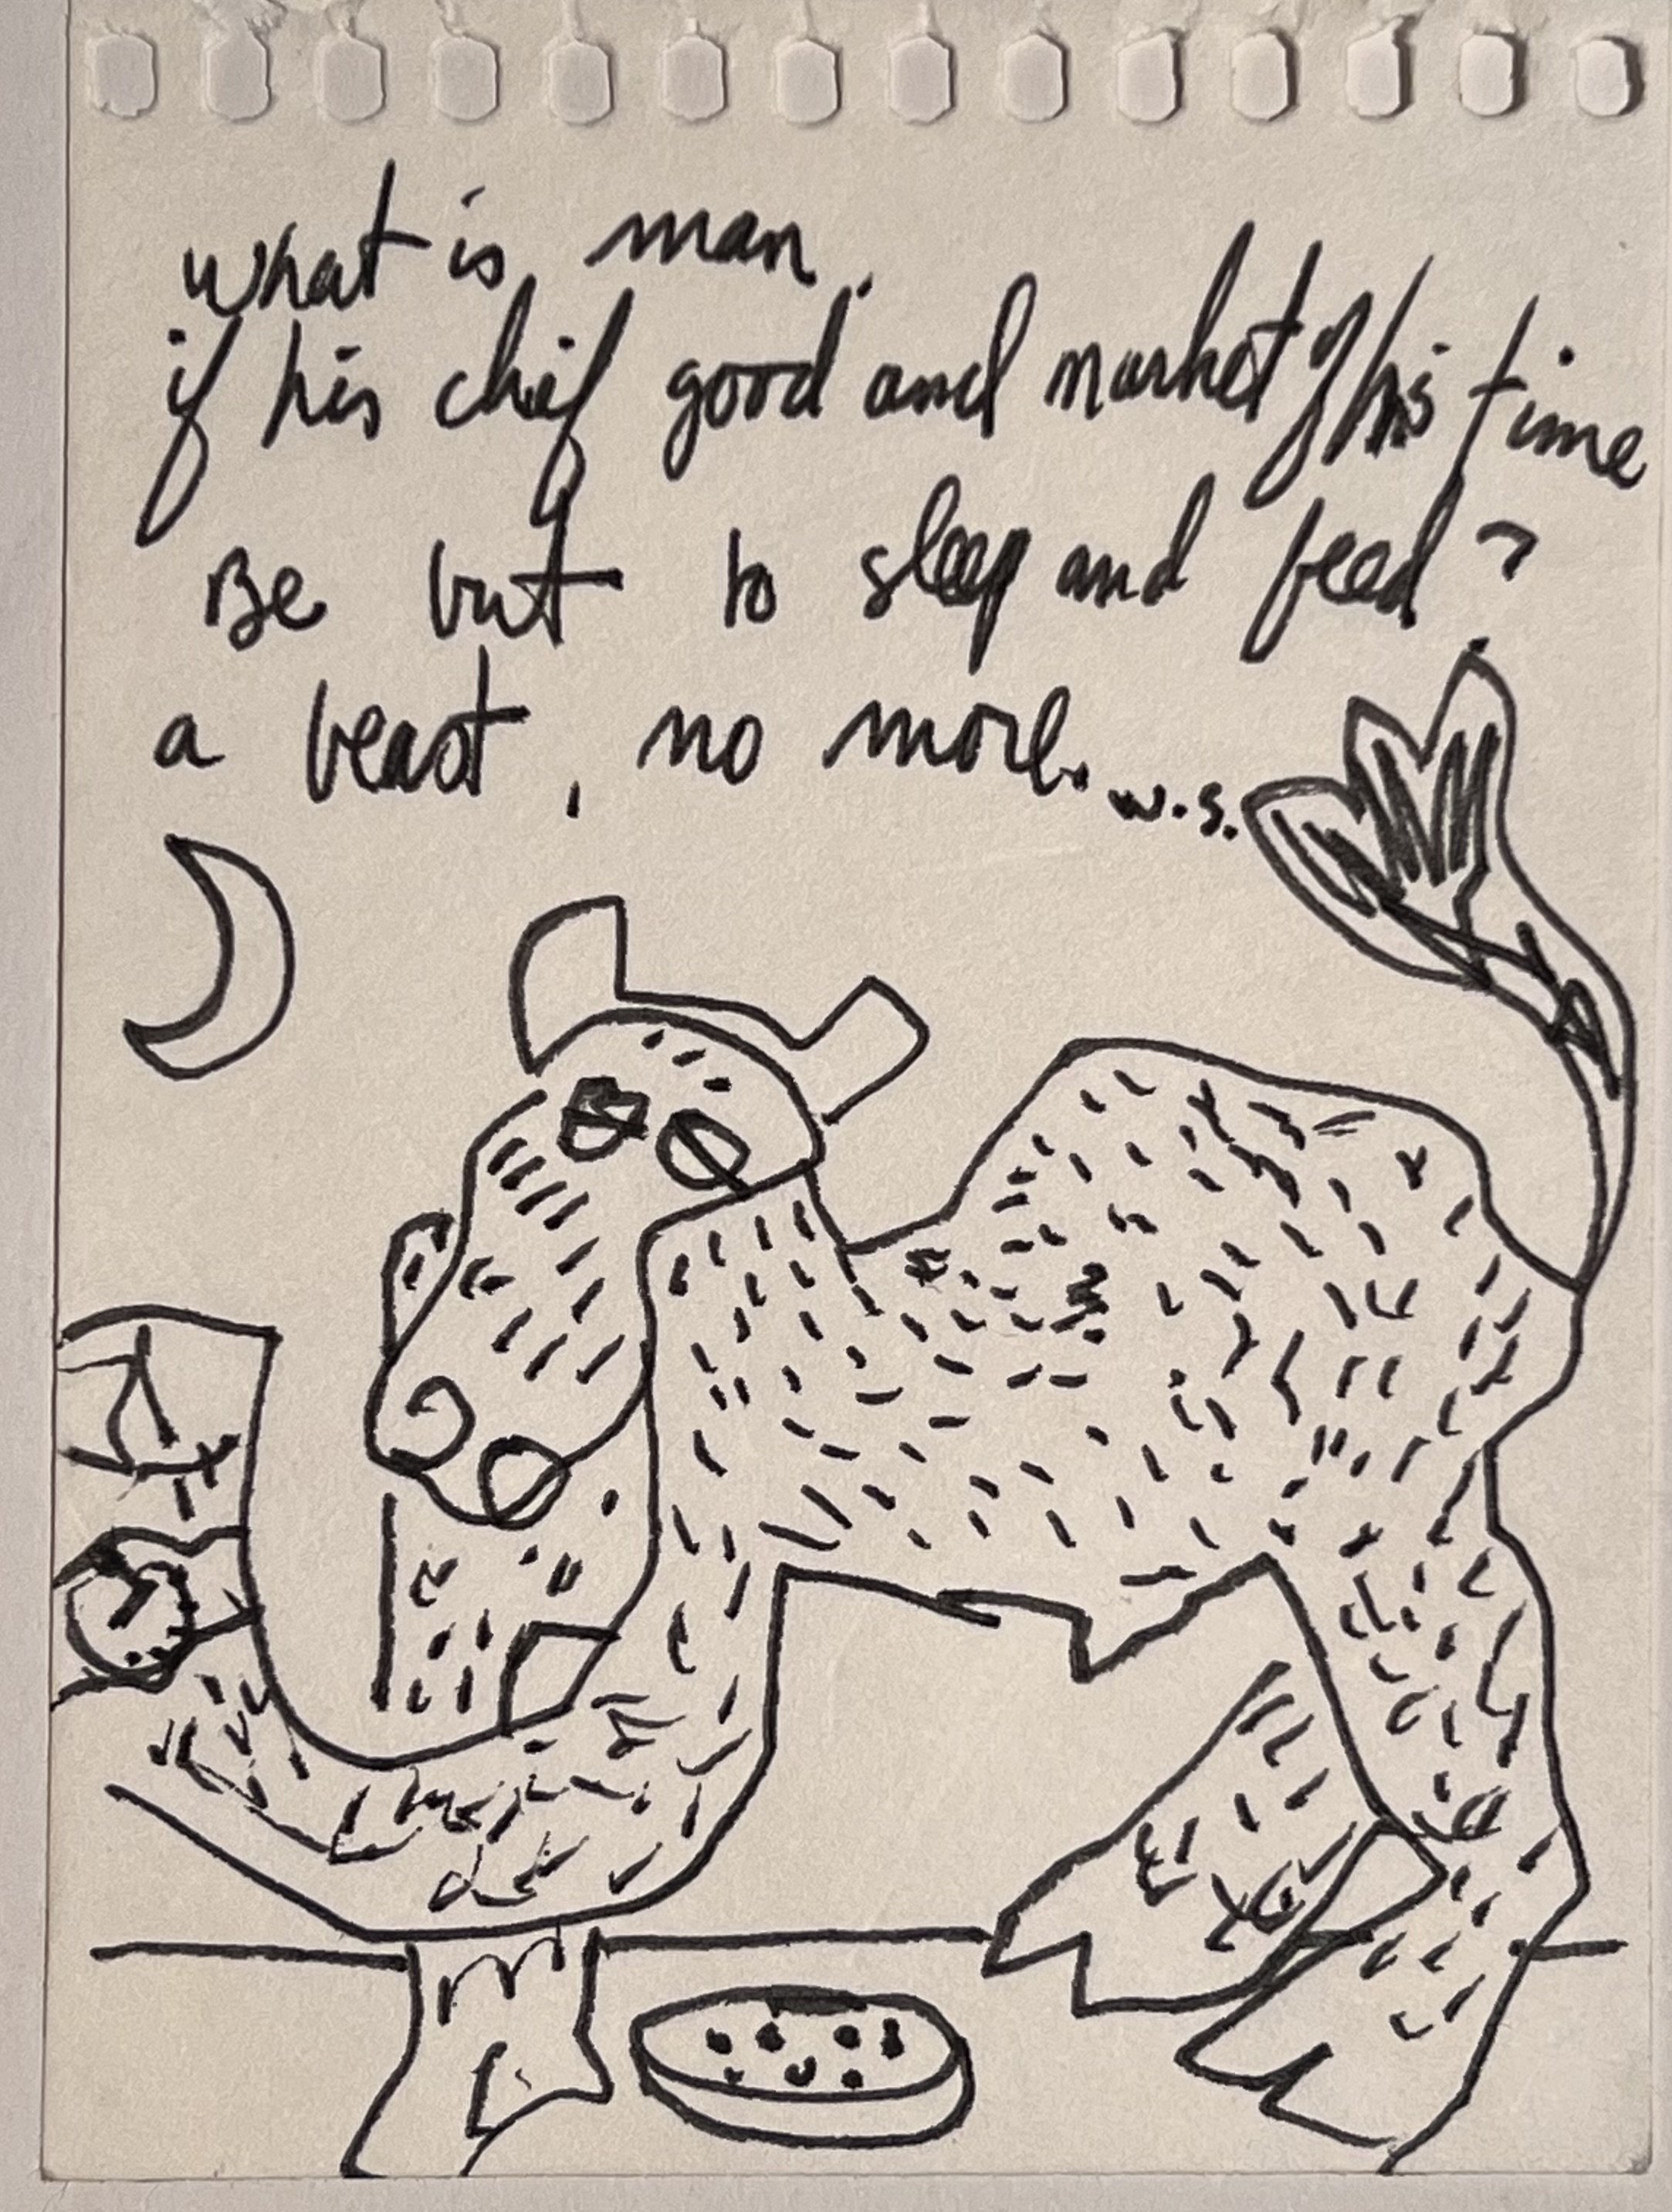 what is man,
if his chif good and market of his time
Be but to sleep and feed?
a beast, no more.
w.s.